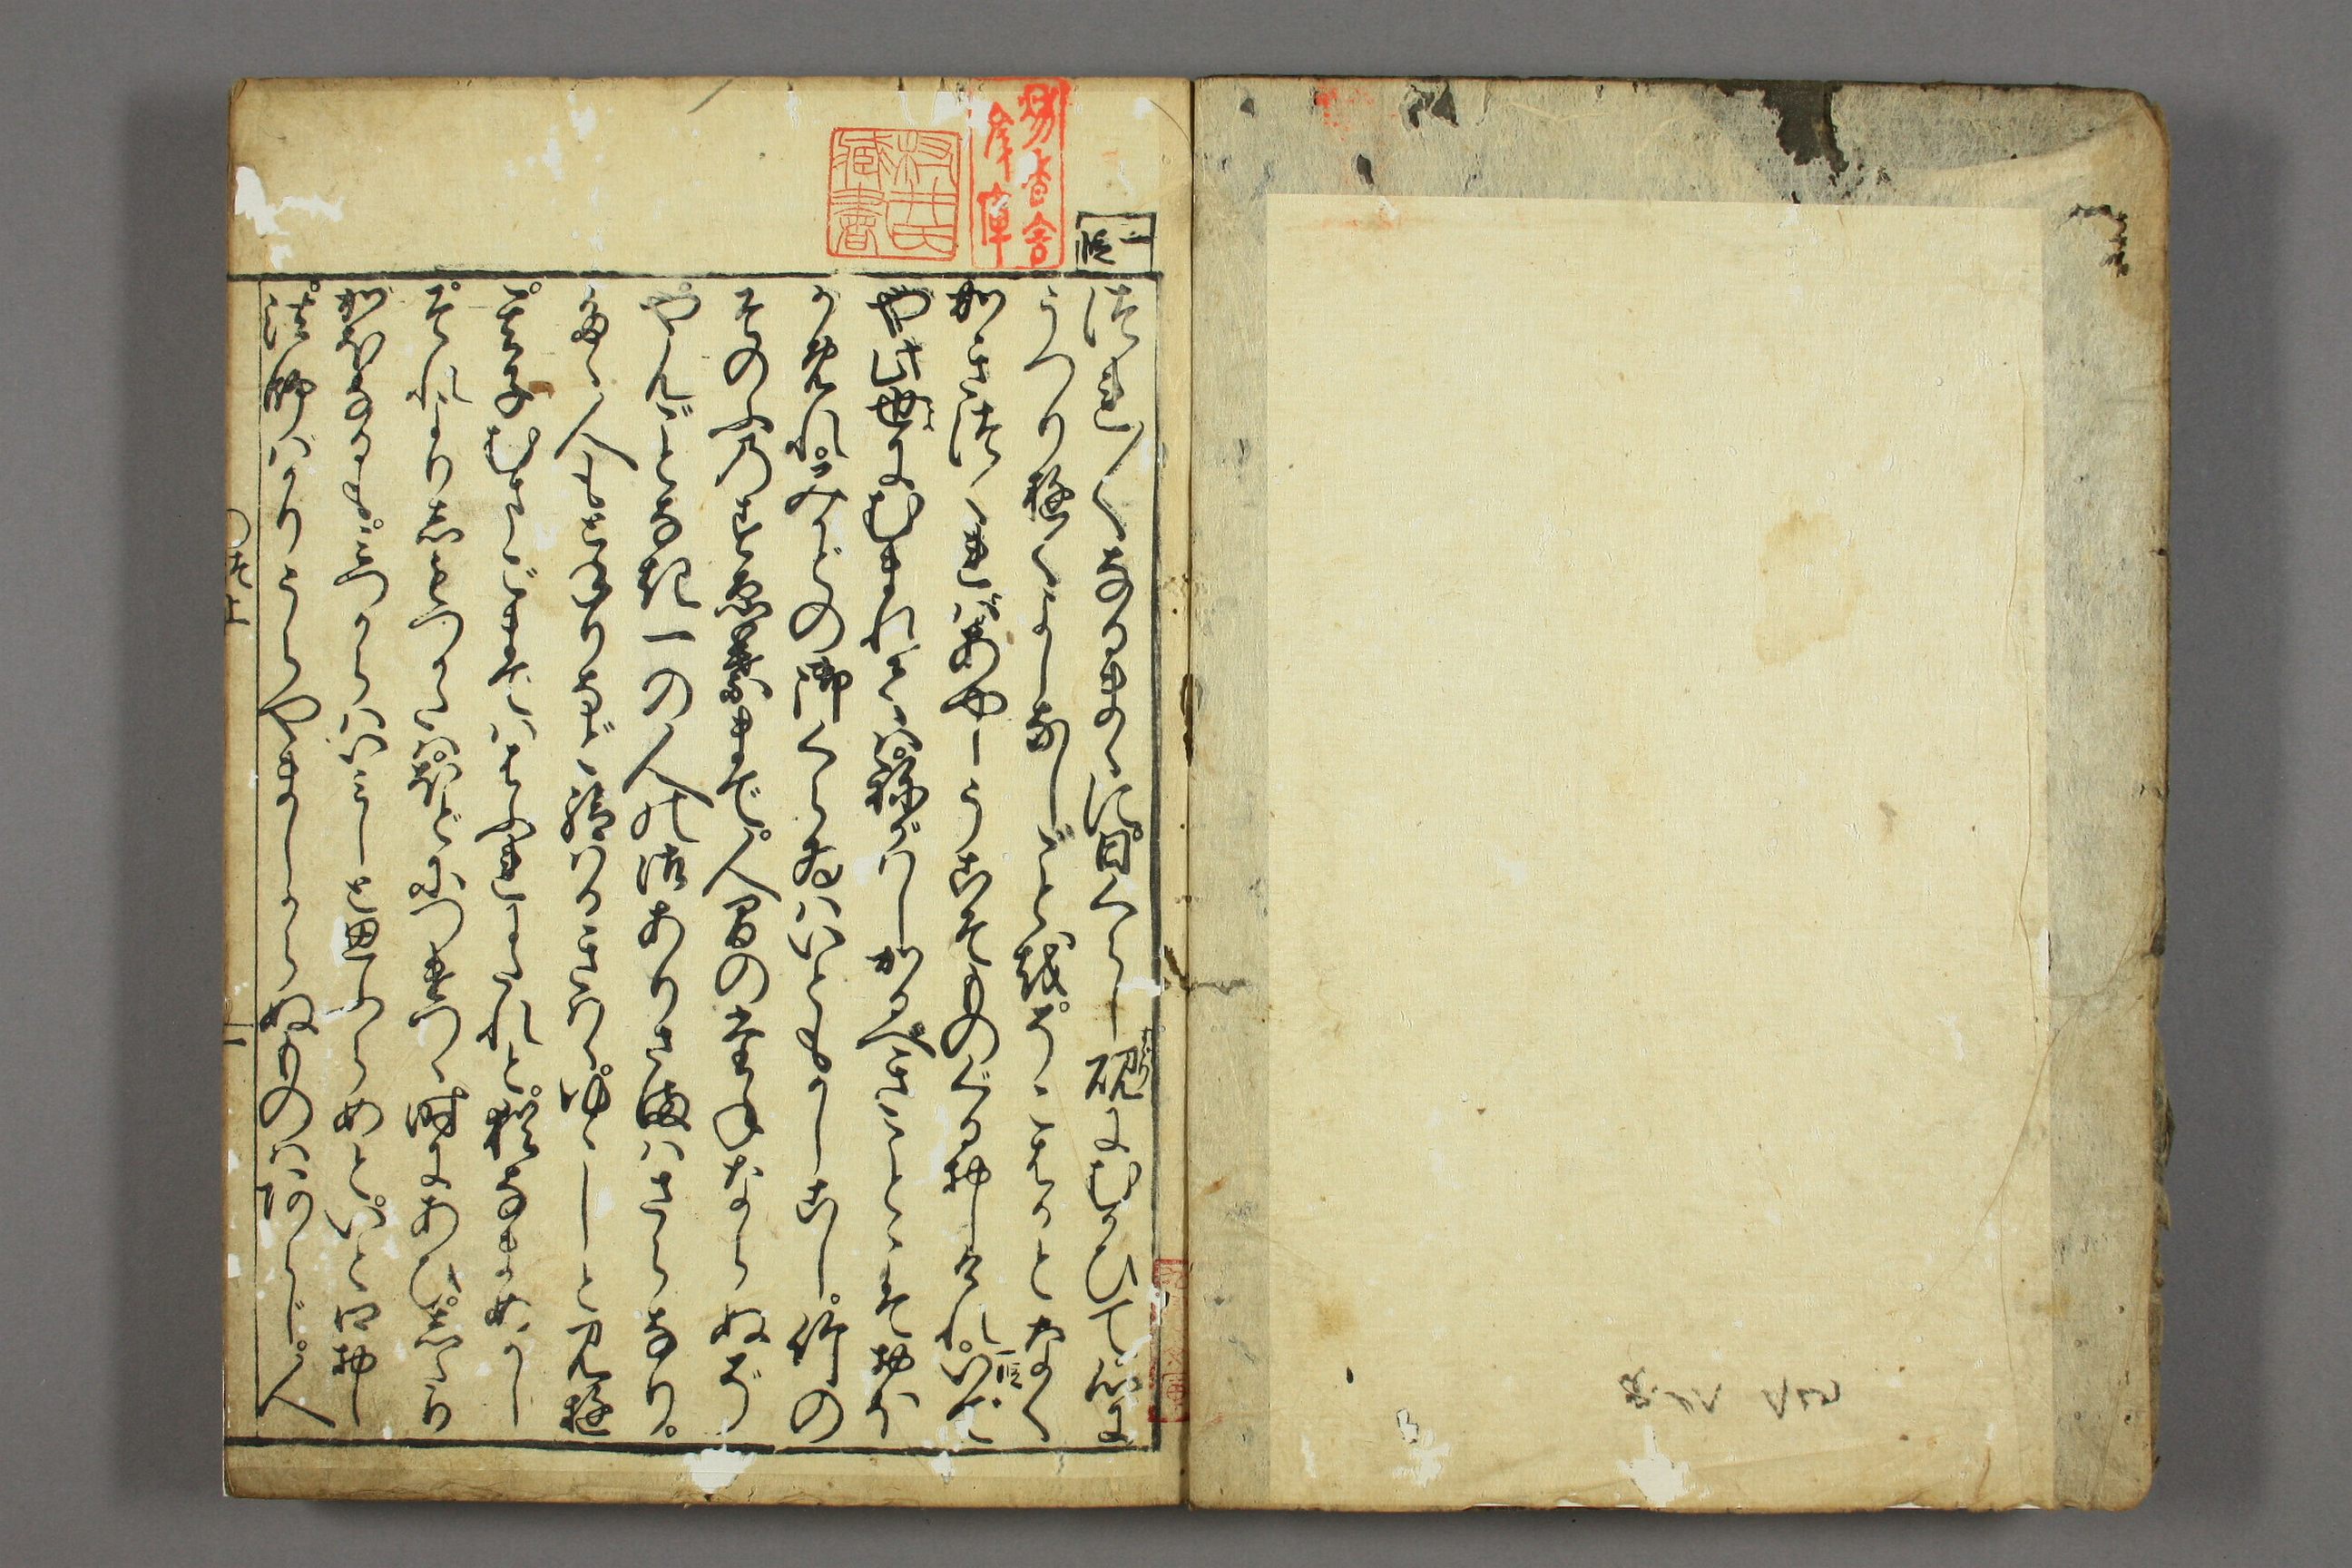 一段
つれ〱なるまゝに。日くらし硯にむかひて心に
うつり行くよしなしごとを。そこはかとなく
かきつくればあやしうこそものぐるおしけれ。いで
や此世にむまれては。ねがはしかるべきことこそおほ
かめれ。みかどの御くらゐはいともかしこし。竹の
そのふのすゑ葉まで。人間のたねならぬぞ
やんごとなき一の人の御ありさまはさらなり。
たゞ人もとねりなど給はるきはゝ。ゆゝしと見ゆ
其子むまごまでは。はふれにたれど。猶なまめかし
それよりしもつかたは。ほどにつけつゝ時にあひ。したり
がほなるも。みづからはいみじと思ふらめど。いと口おし
法師ばかりうらやましからぬものはあらじ。人
つれ上
一